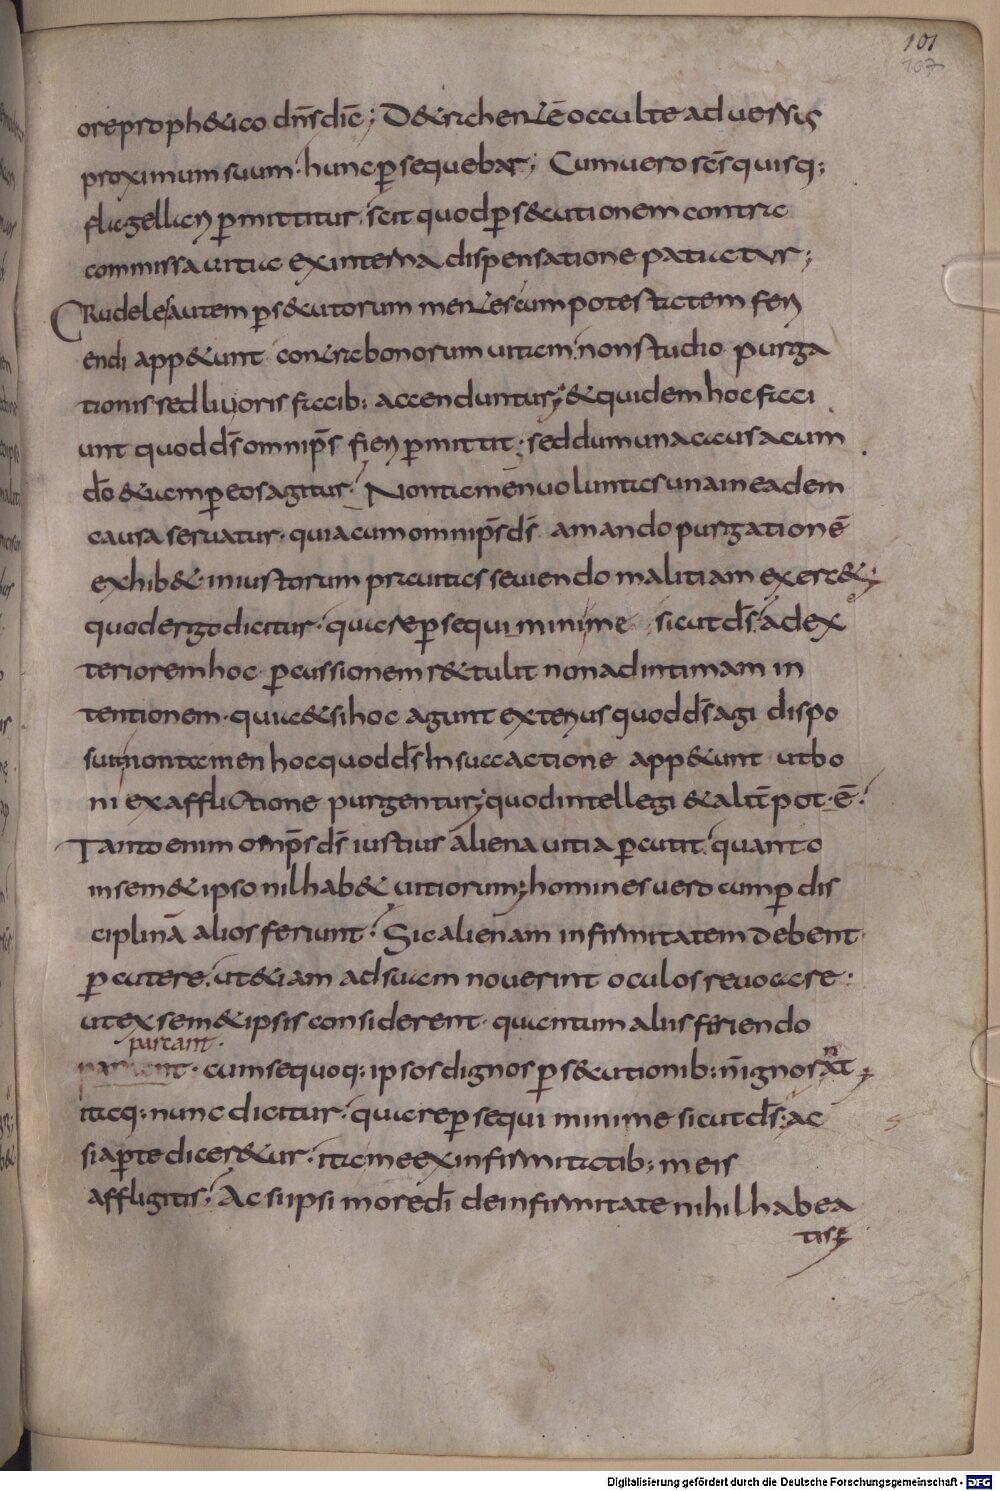 101
107
ore proph&ico dn̄s dic̄; D&rahentē occulte adversus
proximum suum · hunc ꝑsequebar; Cum vero scs̄ quisq;
flagellari ꝑmittitur, scit quod ꝑs&cutionem contra
commissa vitia ex interna dispensatione patiatur;
CRudeles autem ꝑs&cutorum mentes cum potestatem feri
endi app&unt contra bonorum vitam, non studio purga
tionis sed livoris facib; accenduntur; & quidem hoc faci
unt quod ds̄ omnip̄s fieri ꝑmittit; sed dum una causa cum
dō & iam ꝑ eos agitur · Non tamen voluntas una in eadem
causa servatur · quia cum omnip̄s ds̄ amando purgationē
exhib& · iniustorum pravitas seviendo malitiam exerc&;
quod ergo dicitur · quare ꝑsequimini me sicut ds̄; ad ex
teriorem hoc ꝑcussionem r&tulit non ad intimam in
tentionem · quia &si hoc agunt exterius quod ds̄ agi dispo
suit, non tamen hoc quod ds̄ In sua actione app&unt ut bo
ni ex afflictione purgentur; quod intellegi & alit̄ pot · ē ·
Tanto enim omp̄s ds̄ iustius aliena vitia ꝑcutit, quanto
in sem&ipso nil hab& vitiorum; homines vero cum ꝑ dis
ciplinā alios feriunt · Sic alienam infirmitatem debent
ꝑcutere, ut &iam ad suam noverint oculos revocare ·
ut ex sem&ipsis considerent · quantum aliis feriendo
parcant ·
· cum se quoq; ipsos dignos ꝑs&cutionib; n̄ ignorant;
itaq; nunc dicitur · quare ꝑsequimini me sicut ds̄; ac
si aꝑte dicer&ur · ita me ex infirmitatib; meis
affligitis; Ac si ipsi more dī de infirmitate nihil habea
tis;
Digitalisierung gefördert durch die Deutsche Forschungsgemeinschaft - DFG